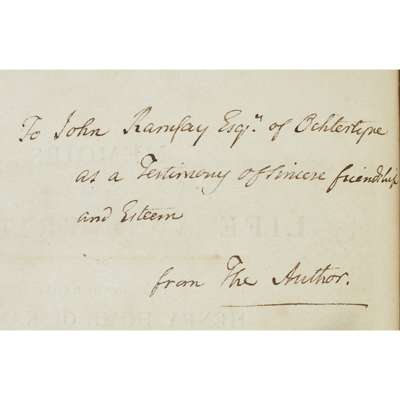 To John Ramsay Esqr. of Ochtertyre
as a Testimony of sincere friendship
and Esteem
from The Author.